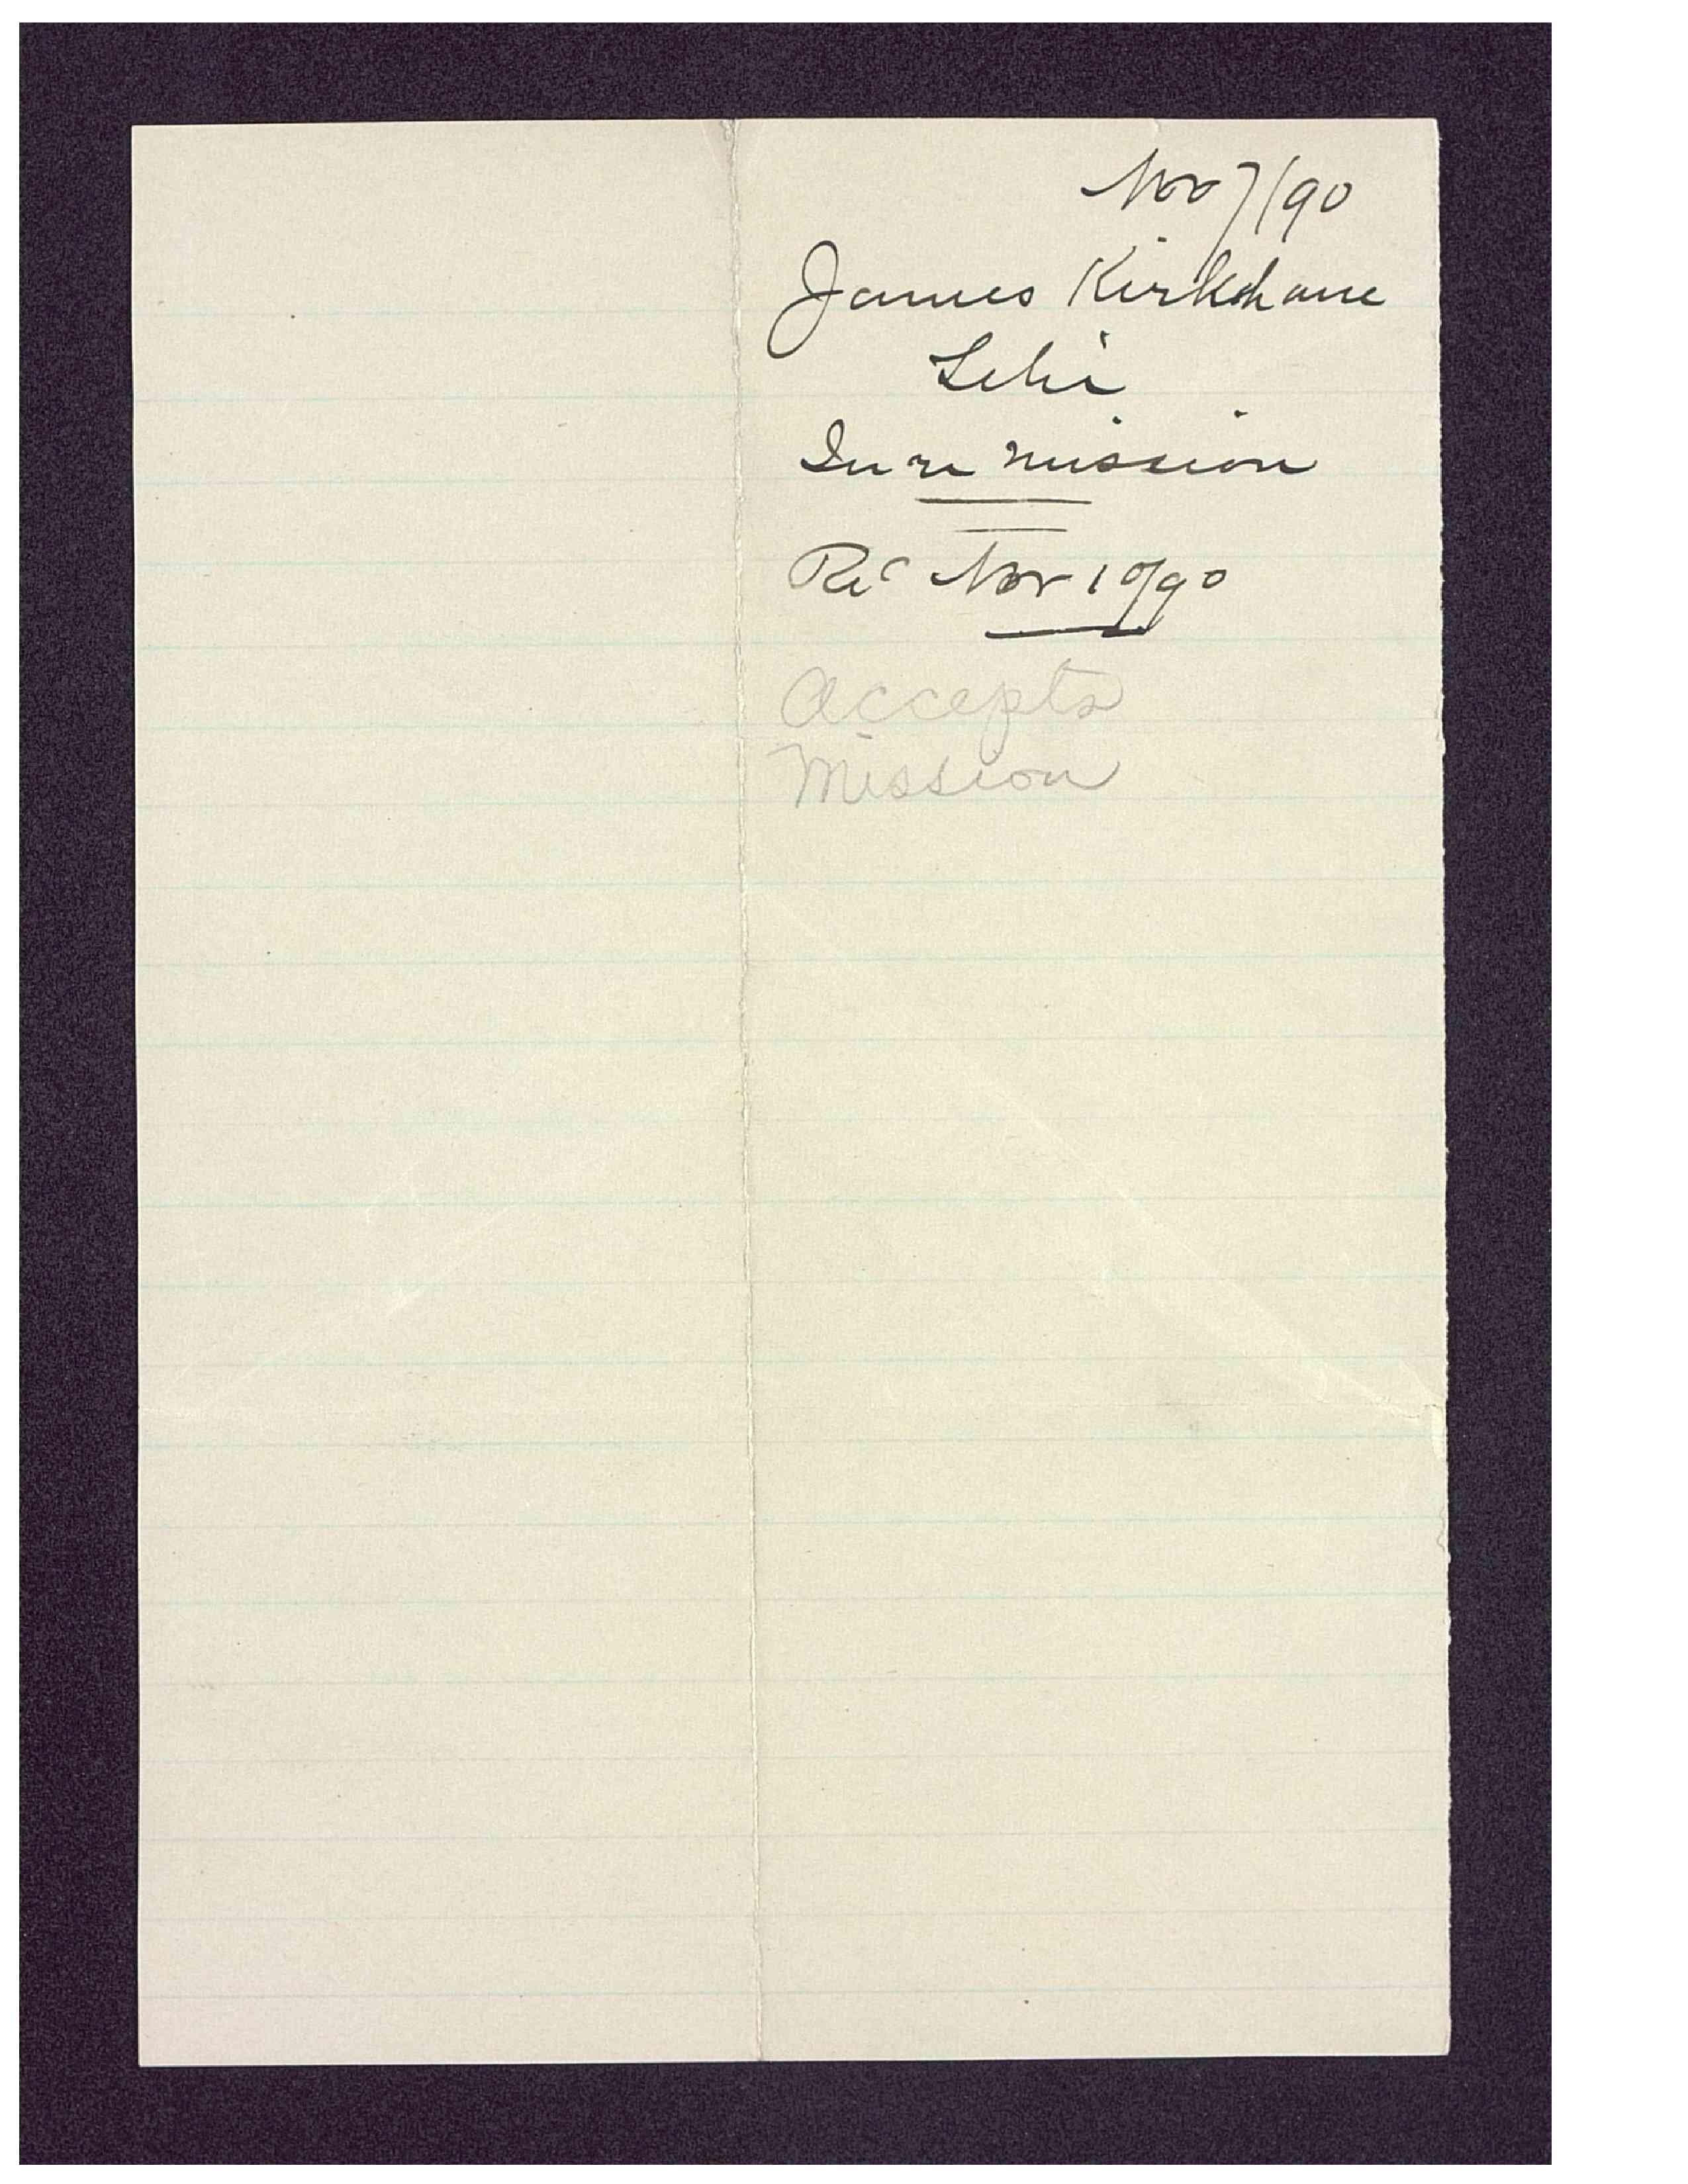 Nov 7/90
James Kirkham
Lehi
In re mission
Rec Nov 10/90
Accepts
Mission